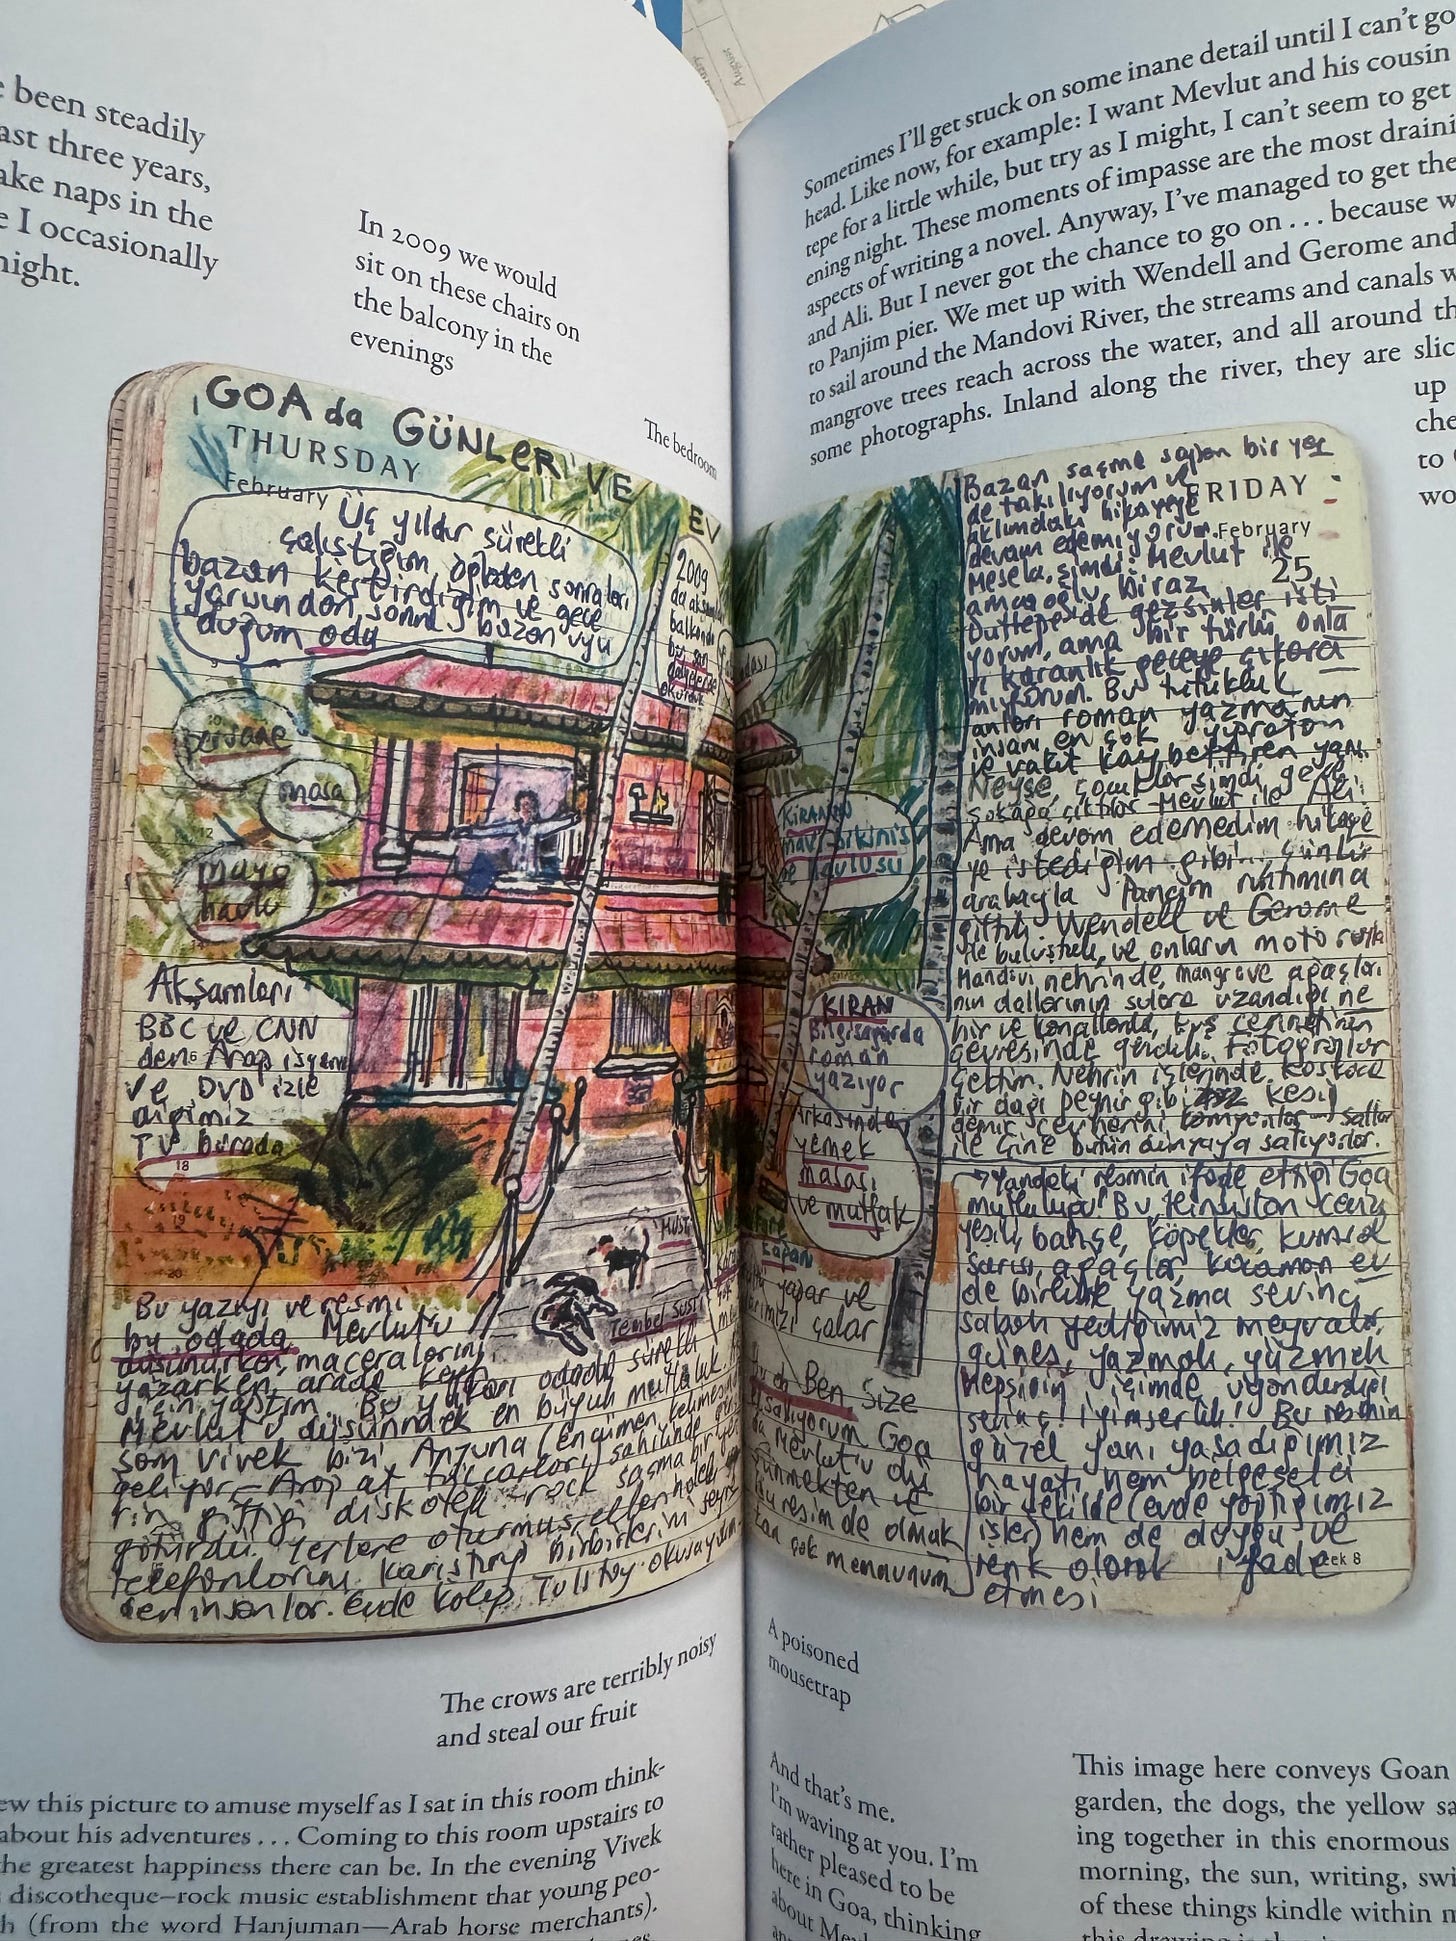 e been steadily
ast three years,
ake naps in the
e I occasionally
night.
In 2009 we would
sit on these chairs on
the balcony in the
evenings
The bedroom
GOA da GÜNLER VE EV
THURSDAY
February
Üç yıldır sürekli
çalıştığım öğleden sonraları
bazan kestirdiğim ve gece
yarısından sonra bazan uyu
duğum oda
2009
da akşam
balkonda
masa
mayo
havlu
Akşamları
BBC ve CNN
den Arap isyanı
ve DVD izle
diğimiz
TV burada
18
19
20
Tembel
Bu yazıyı ve resmi
bu odada Mevlut'u
düşünürken, maceralarını
yazarken, arada keyf
için yaptım. Bu yukarı odada sürekli
Mevlut'u düşünmek en büyük mutluluk.
som Vivek bizi, Anjuna (encümen, kelimesinden
geliyor - Arap at tüccarları) sahilinde
rin gittiği diskotek - rock saçma bir yere
götürdü. Yerlere oturmuş, ellerinde
telefonlarını karıştırıp birbirlerini
den insanlar. Evde kalıp Tolstoy okusaydım.
Sometimes I'll get stuck on some inane detail until I can't go
head. Like now, for example: I want Mevlut and his cousin
tepe for a little while, but try as I might, I can't seem to get
ening night. These moments of impasse are the most draini
aspects of writing a novel. Anyway, I've managed to get the
and Ali. But I never got the chance to go on . . . because w
to Panjim pier. We met up with Wendell and Gerome and
to sail around the Mandovi River, the streams and canals w
mangrove trees reach across the water, and all around th
some photographs. Inland along the river, they are slic
up
che
to
wo
FRIDAY
February
25
Bazan saçma sapan bir yer
de takılıyorum ve
aklımdaki hikayeye
devam edemiyorum.
Mesela, şimdi: Mevlut ile
amcaoğlu, biraz
Duttepe'de gezsinler isti
yorum, ama bir türlü onla
rı karanlık geceye çıkara
mıyorum. Bu tutukluk
anları roman yazmanın
insanı en çok yıpratan
ve vakit kaybettiren yanı.
Neyse, çocuklar şimdi gece
sokağa çıktılar Mevlut ile Ali.
Ama devam edemedim hikaye
ye istediğim gibi... çünkü
arabayla Panjim rıhtımına
gittik Wendell ve Gerome
ile buluştuk, ve onların motoruyla
Mandovi nehrinde, mangrove ağaçları
nın dallarının sulara uzandığı ne
hir ve kanallarda, kuş cennetinin
çevresinde gezdik. Fotoğraflar
çektim. Nehrin içlerinde, koskoca
bir dağı peynir gibi kesip
demir cevherini
ile Çine bütün dünyaya satıyorlar.
Yandaki resmin ifade ettiği Goa
mutluluğu! Bu Hindistan
yeşili, bahçe, köpekler, kumsal
sarısı, ağaçlar, kocaman ev
de birlikte yazma sevinci
sabah yediğimiz meyvalar,
güneş, yazmak, yüzmek
hepsinin içimde uyandırdığı
sevinç! iyimserlik! Bu resmin
güzel yanı yaşadığımız
hayatı hem belgeselci
bir şekilde (evde yaptığımız
işler) hem de duygu ve
renk olarak ifade
etmesi
eek 8
KİRAN'IN
mavi bikinisi
ve havlusu
KIRAN
Bilgisayarda
roman
yazıyor
Arkasında
yemek
masası
ve mutfak
kapan
yapar ve
çalar
Ben. Size
el sallıyorum. Goa
da Mevlut'u dü
şünmekten ve
bu resimde olmak
tan çok memnunum
The crows are terribly noisy
and steal our fruit
ew this picture to amuse myself as I sat in this room think-
about his adventures . . . Coming to this room upstairs to
he greatest happiness there can be. In the evening Vivek
discotheque—rock music establishment that young peo-
h (from the word Hanjuman—Arab horse merchants).
A poisoned
mousetrap
And that's me.
I'm waving at you. I'm
rather pleased to be
here in Goa, thinking
about Mev
This image here conveys Goan
garden, the dogs, the yellow sa
ing together in this enormous
morning, the sun, writing, swi
of these things kindle within m